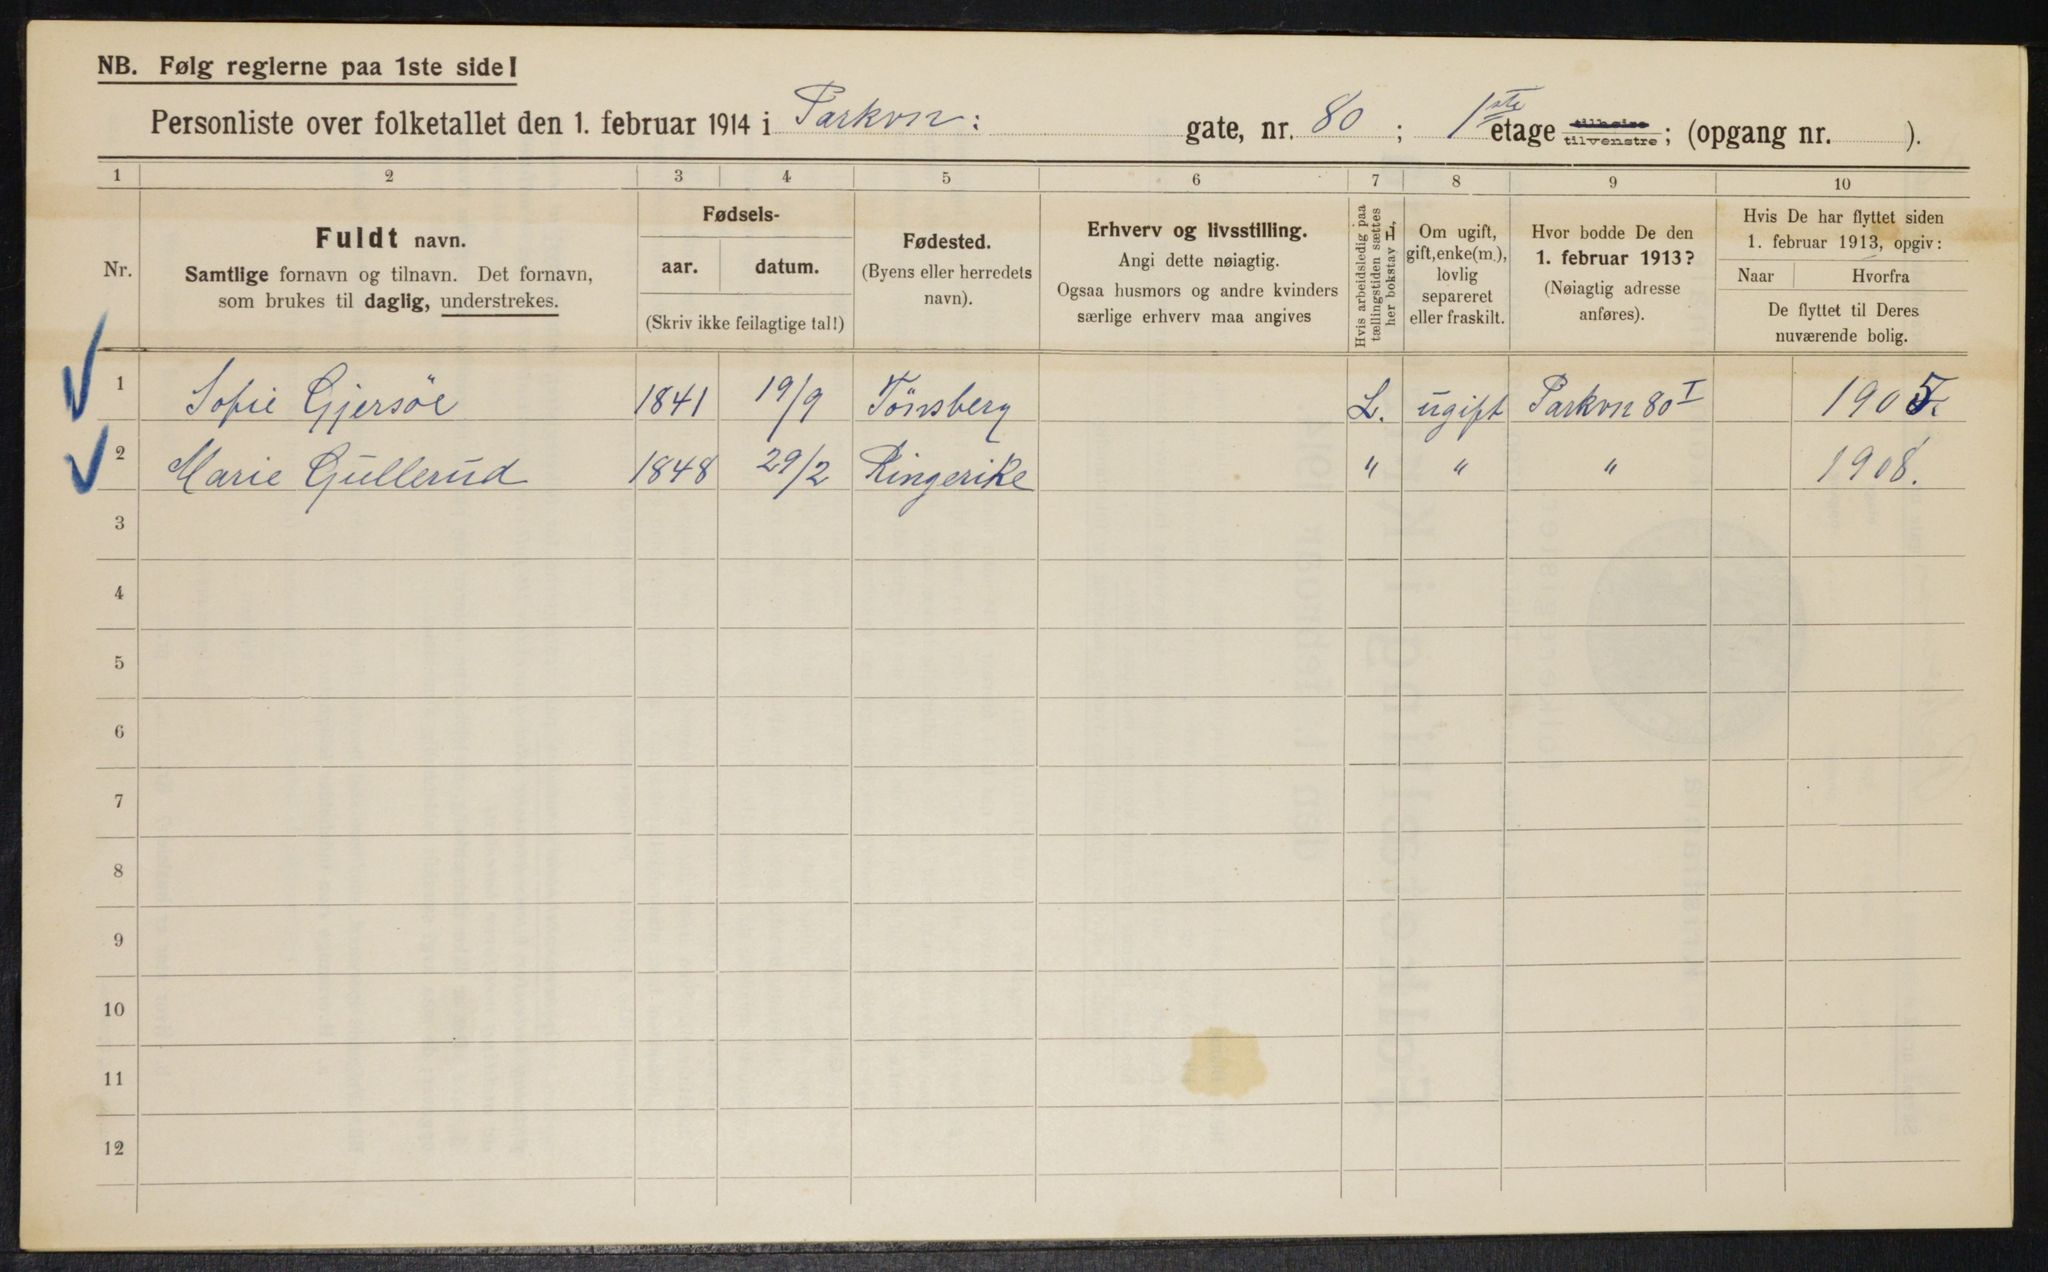 NB. Følg reglerne paa 1ste side!
Personliste over folketallet den 1. februar 1914 i Parkvn: gate, nr. 80 ; 1ste etage tilhøire tilvenstre ; (opgang nr. ).
1 2 3 4 5 6 7 8 9 10
Nr.
Fuldt navn.
Samtlige fornavn og tilnavn. Det fornavn,
som brukes til daglig, understrekes.
Fødsels-
aar. datum.
(Skriv ikke feilagtige tal!)
Fødested.
(Byens eller herredets
navn).
Erhverv og livsstilling.
Angi dette nøiagtig.
Ogsaa husmors og andre kvinders
særlige erhverv maa angives
Hvis arbeidsledig paa
tællingstiden sættes
her bokstav L,
Om ugift,
gift, enke(m.),
lovlig
separeret
eller fraskilt.
Hvor bodde De den
1. februar 1913?
(Nøiagtig adresse
anføres).
Hvis De har flyttet siden
1. februar 1913, opgiv:
Naar Hvorfra
De flyttet til Deres
nuværende bolig.
1 Sofie Gjersöe 1841 19/9 Tönsberg L. ugift Parkvn 80 I 1905.
2 Marie Gullerud 1848 29/2 Ringerike " " " 1908.
3
4
5
6
7
8
9
10
11
12